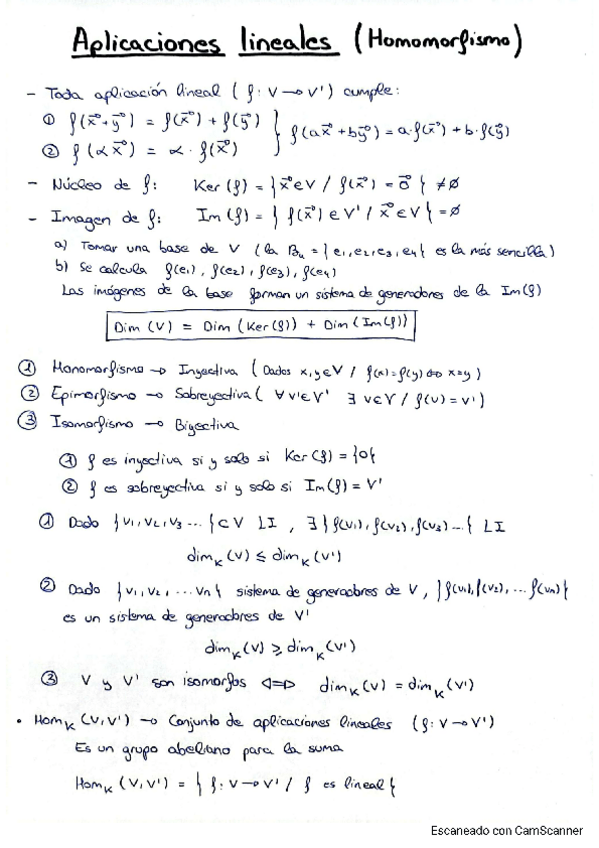 Aplicaciones lineales (Homomorfismo)
- Toda aplicación lineal (f: V → V') cumple:
① f(x⃗+y⃗) = f(x⃗) + f(y⃗) } f(ax⃗+by⃗) = a·f(x⃗) + b·f(y⃗)
② f(αx⃗) = α·f(x⃗)
- Núcleo de f: Ker(f) = {x⃗∈V / f(x⃗) = 0⃗} ≠∅
- Imagen de f: Im(f) = {f(x⃗)∈V' / x⃗∈V} =∅
a) Tomar una base de V (la Bu = {e1, e2, e3, e4} es la más sencilla)
b) Se calcula f(e1), f(e2), f(e3), f(e4)
Las imágenes de la base forman un sistema de generadores de la Im(f)
Dim(V) = Dim(Ker(f)) + Dim(Im(f))
① Monomorfismo → Inyectiva (Dados x,y∈V / f(x)=f(y) ⇔ x=y)
② Epimorfismo → Sobreyectiva (∀ v'∈V' ∃ v∈V / f(v) = v')
③ Isomorfismo → Biyectiva
① f es inyectiva si y solo si Ker(f) = {0}
② f es sobreyectiva si y solo si Im(f) = V'
① Dado {v1, v2, v3 ...} ⊂ V LI, ∃ {f(v1), f(v2), f(v3) ...} LI
dimK(V) ≤ dimK(V')
② Dado {v1, v2, ... vn} sistema de generadores de V, {f(v1), f(v2), ... f(vn)}
es un sistema de generadores de V'
dimK(V) ≥ dimK(V')
③ V y V' son isomorfos ⇔ dimK(V) = dimK(V')
• HomK(V,V') → Conjunto de aplicaciones lineales (f: V → V')
Es un grupo abeliano para la suma
HomK(V,V') = {f: V → V' / f es lineal}
Escaneado con CamScanner